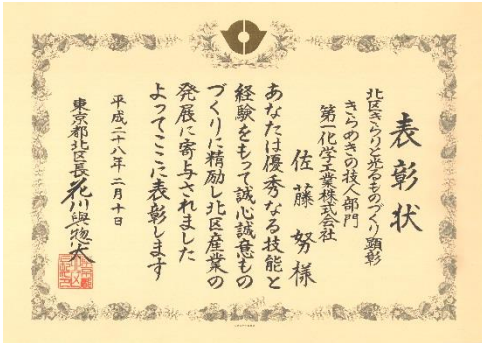 表彰状
北区きらりと光るものづくり顕彰
きらめきの技人部門
第一化学工業株式会社
佐藤 努 様
あなたは優秀なる技能と
経験をもって誠心誠意もの
づくりに精励し北区産業の
発展に寄与されました
よってここに表彰します
平成二十八年二月十日
東京都北区長 花川與惣太